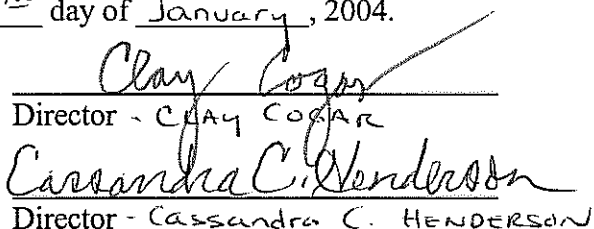 day of January, 2004.
Clay Cogar
Director - CLAY COGAR
Cassandra C. Henderson
Director - Cassandra C. HENDERSON